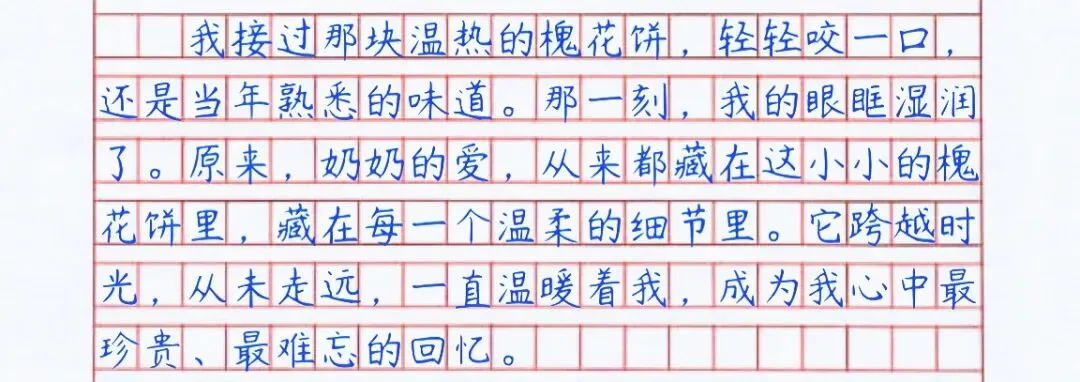 我接过那块温热的槐花饼，轻轻咬一口，
还是当年熟悉的味道。那一刻，我的眼眶湿润
了。原来，奶奶的爱，从来都藏在这小小的槐
花饼里，藏在每一个温柔的细节里。它跨越时
光，从未走远，一直温暖着我，成为我心中最
珍贵、最难忘的回忆。